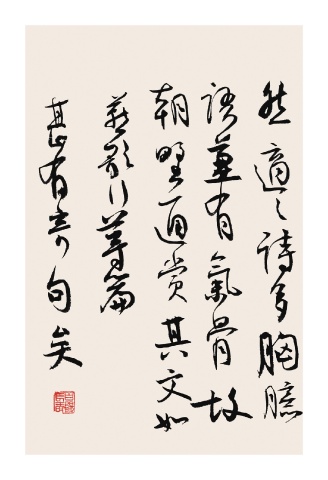 然適之詩多胸臆
語兼有氣骨故
朝野通賞其文如
燕歌行等篇
甚有奇句矣